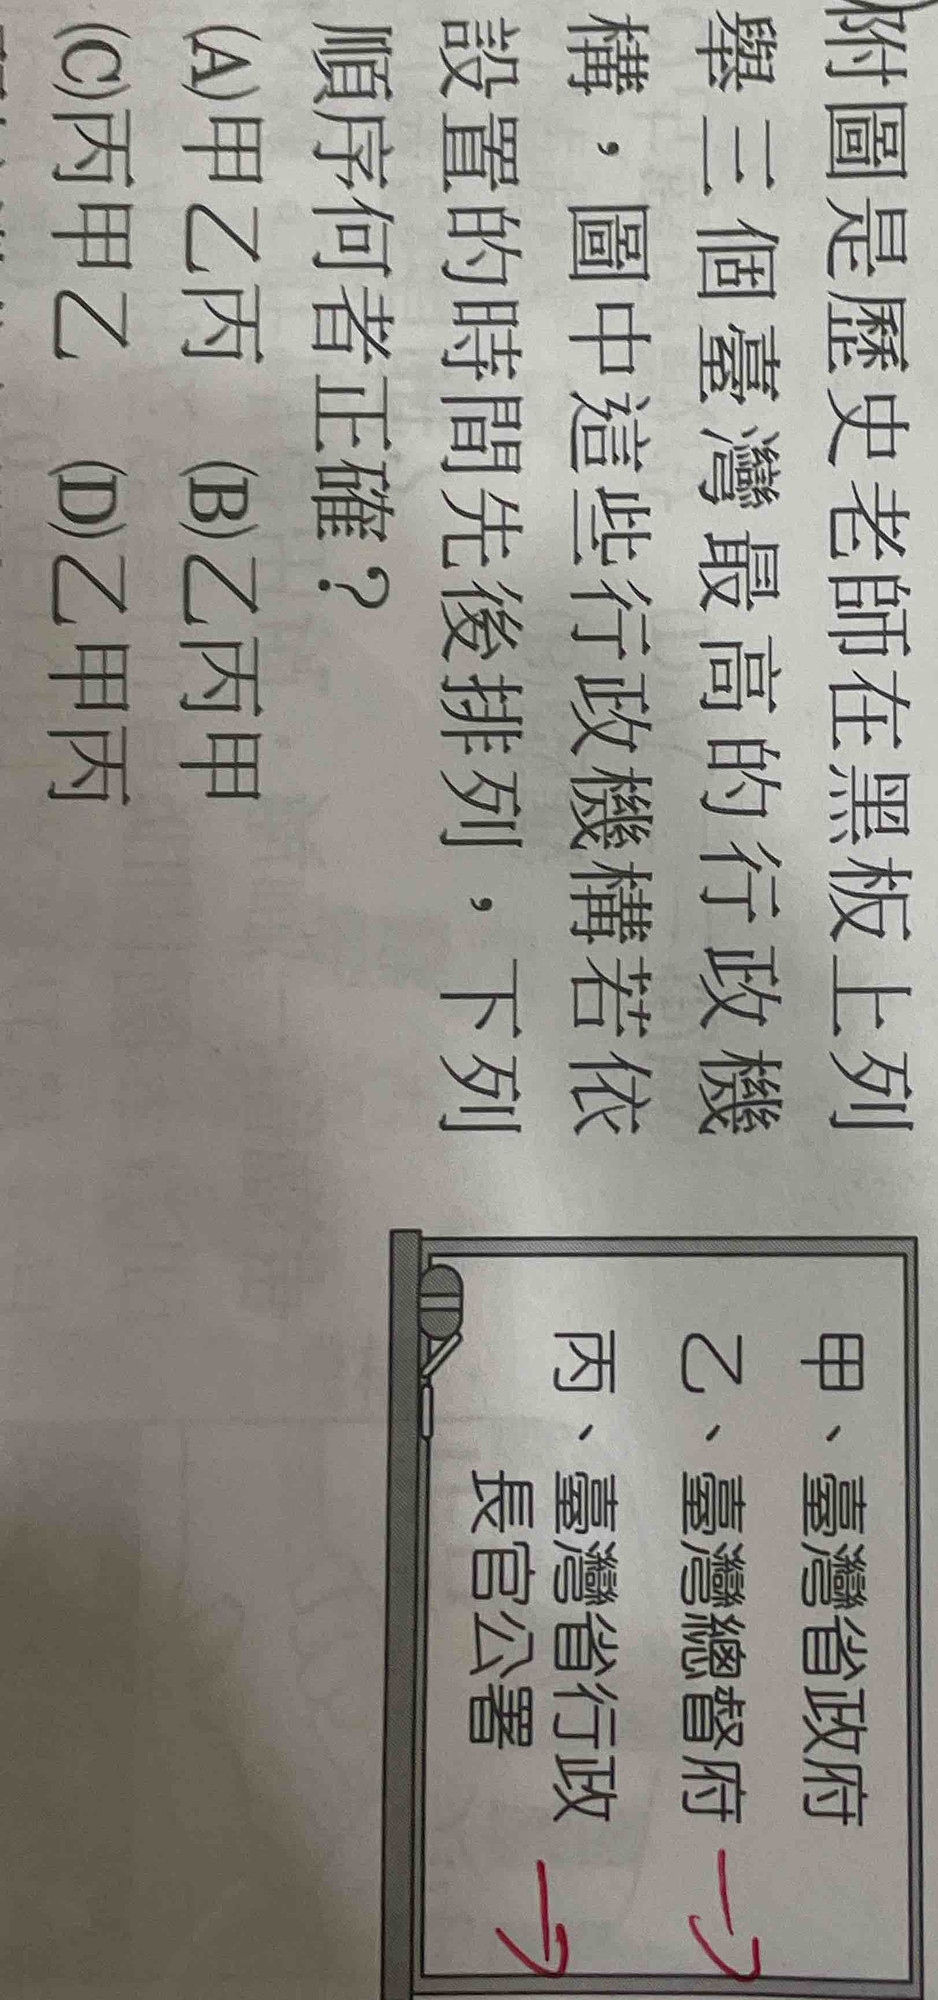 附圖是歷史老師在黑板上列
舉三個臺灣最高的行政機
構，圖中這些行政機構若依
設置的時間先後排列，下列
順序何者正確？
(A)甲乙丙　(B)乙丙甲
(C)丙甲乙　(D)乙甲丙
甲、臺灣省政府
乙、臺灣總督府
丙、臺灣省行政
長官公署